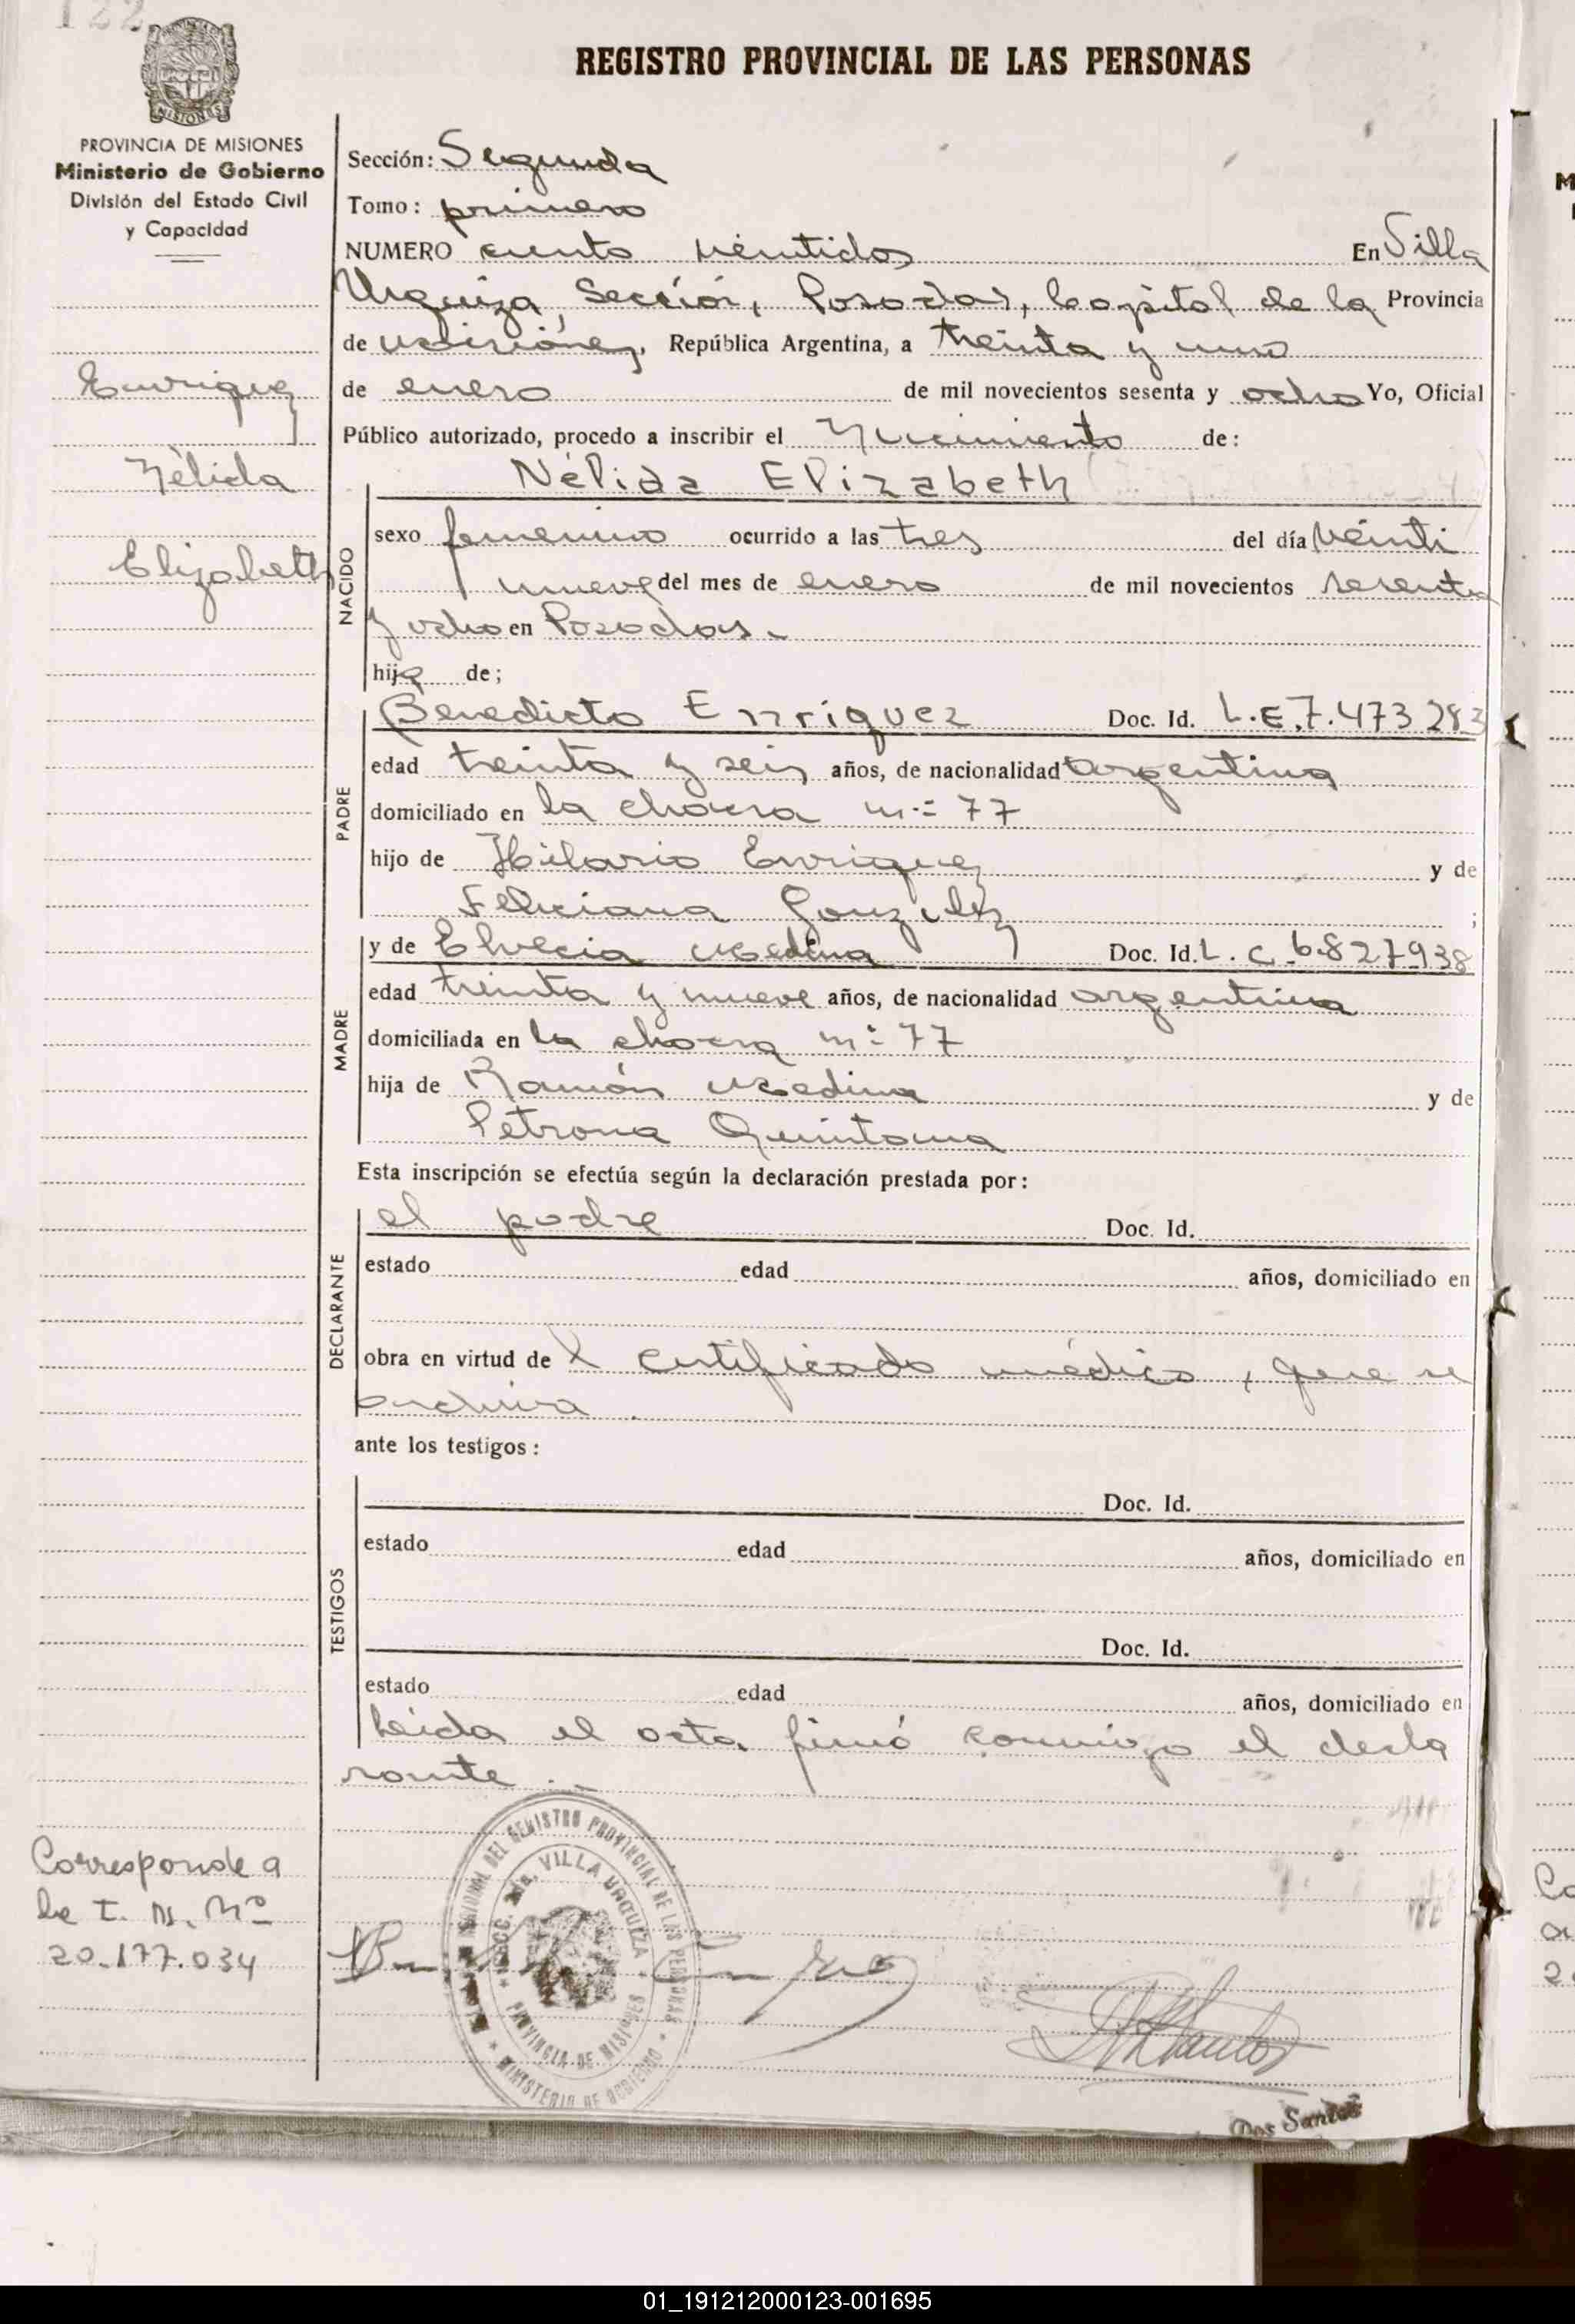 122
REGISTRO PROVINCIAL DE LAS PERSONAS
MISIONES
PROVINCIA DE MISIONES
Ministerio de Gobierno
División del Estado Civil
y Capacidad
Enriquez
Nélida
Elizabeth
Sección: Segunda
Tomo: primero
NUMERO ciento veintidos En Villa
Urquiza Sección, Posadas, Capital de la Provincia
de Misiones, República Argentina, a treinta y uno
de enero de mil novecientos sesenta y ocho Yo, Oficial
Público autorizado, procedo a inscribir el Nacimiento de:
Nélida Elizabeth
NACIDO
sexo femenino ocurrido a las tres del día veinti
nueve del mes de enero de mil novecientos sesenta
y ocho en Posadas.
hija de;
PADRE
Benedicto Enríquez Doc. Id. L.E.7.473283
edad treinta y seis años, de nacionalidad argentina
domiciliado en la chacra n: 77
hijo de Hilario Enriquez y de
Feliciana Gonzalez ;
MADRE
y de Elvecia Medina Doc. Id. L.C.6.827938
edad treinta y nueve años, de nacionalidad argentina
domiciliada en la chacra n: 77
hija de Ramón Medina y de
Petrona Quintana
Esta inscripción se efectúa según la declaración prestada por:
DECLARANTE
el padre Doc. Id.
estado edad años, domiciliado en
obra en virtud de l certificado médico, que se
archiva.
ante los testigos:
TESTIGOS
Doc. Id.
estado edad años, domiciliado en
Doc. Id.
estado edad años, domiciliado en
Leida el acta, firmó conmigo el decla
rante.
Corresponde a
la T. N. Nº
20.177.034
DEL REGISTRO PROVINCIAL DE LAS PERSONAS
SECC. 2da. VILLA URQUIZA
PROVINCIA DE MISIONES
MINISTERIO DE GOBIERNO
Dos Santos
01_191212000123-001695